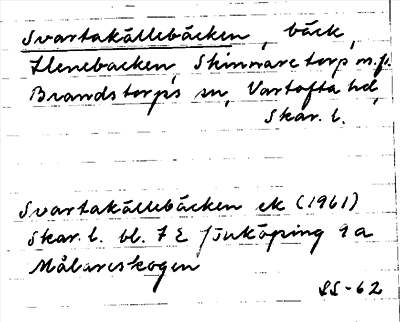 Svartakällebäcken, bäck,
Stenebacken, Skinnaretorp m.fl.
Brandstorps sn, Vartofta hd,
Skar. l.
Svartakällebäcken ek (1961)
Skar. l. bl. 7 E Jönköping 9 a
Målareskogen
SS-62